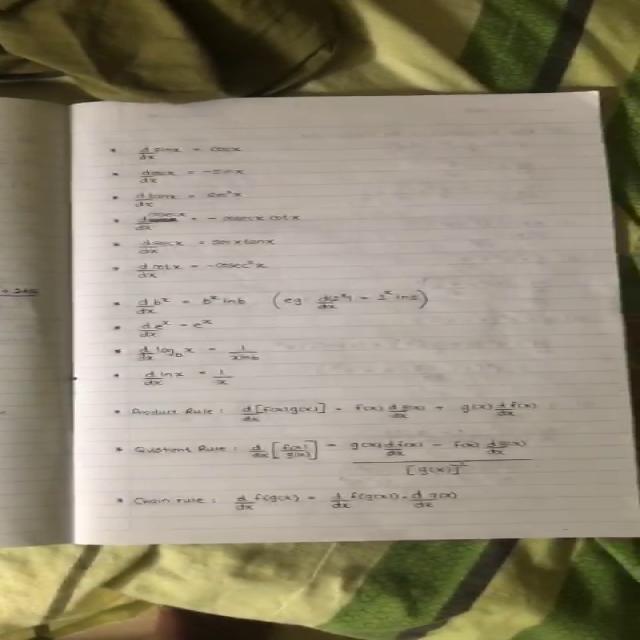 • d/dx sinx = cosx
• d/dx cosx = -sinx
• d/dx tanx = sec²x
• d/dx cosecx = -cosecx cotx
• d/dx secx = secxtanx
• d/dx cotx = -cosec²x
• d/dx bˣ = bˣ lnb (eg: d/dx(2ˣ) = 2ˣ ln2)
• d/dx eˣ = eˣ
• d/dx log_b x = 1/xlnb
• d/dx lnx = 1/x
• Product Rule: d/dx [f(x)g(x)] = f(x) d/dx g(x) + g(x) d/dx f(x)
• Quotient Rule: d/dx [f(x)/g(x)] = g(x) d/dx f(x) - f(x) d/dx g(x) / [g(x)]²
• Chain rule: d/dx f(g(x)) = d/dx f(g(x)) . d/dx g(x)